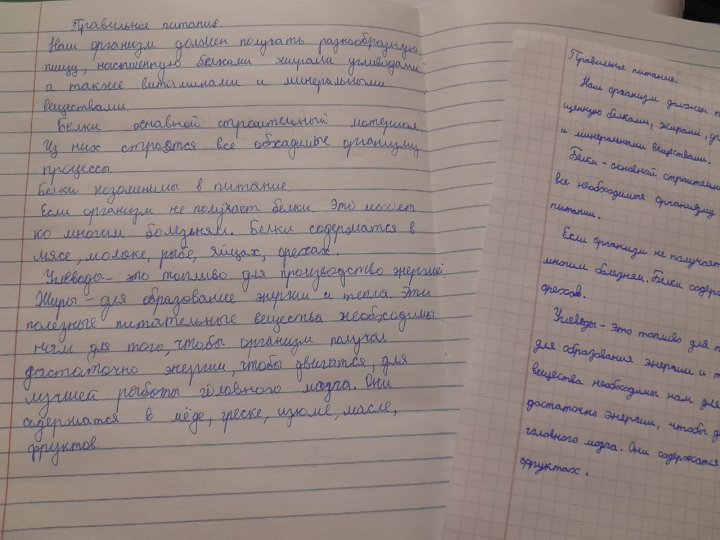 Правильное питание.
Наш организм должен получать разнообразную
пищу, насыщенную белками жирами углеводами
а также витаминами и минеральными
веществами.
Белки основной строительный материал.
Из них строятся все обходимые организму
процессы.
Белки незаменимы в питание.
Если организм не получает белки. Это может
ко многим болезням. Белки содержатся в
мясе, молоке, рыбе, яйцах, орехах.
Углеводы - это топливо для производство энергии.
Жиры - для образование энергии и тепла. Эти
полезные питательные вещества необходимы
ням для того, чтобы организм получал
достаточно энергии, чтобы двигатся, для
лучшей работы головного мозга. Они
содержатся в мёде, греске, изюме, масле,
фруктов.
Правильное питание.
Наш организм должен п
щенную белками, жирами, уг
и минеральными веществами.
Белки - основной строительн
все необходимые организму
питании.
Если организм не получает
многим болезням. Белки содер
орехов.
Углеводы - это топливо для п
для образования энергии и т
вещества необходимы нам для
достаточно энергии, чтобы д
головного мозга. Они содержатся
фруктах.